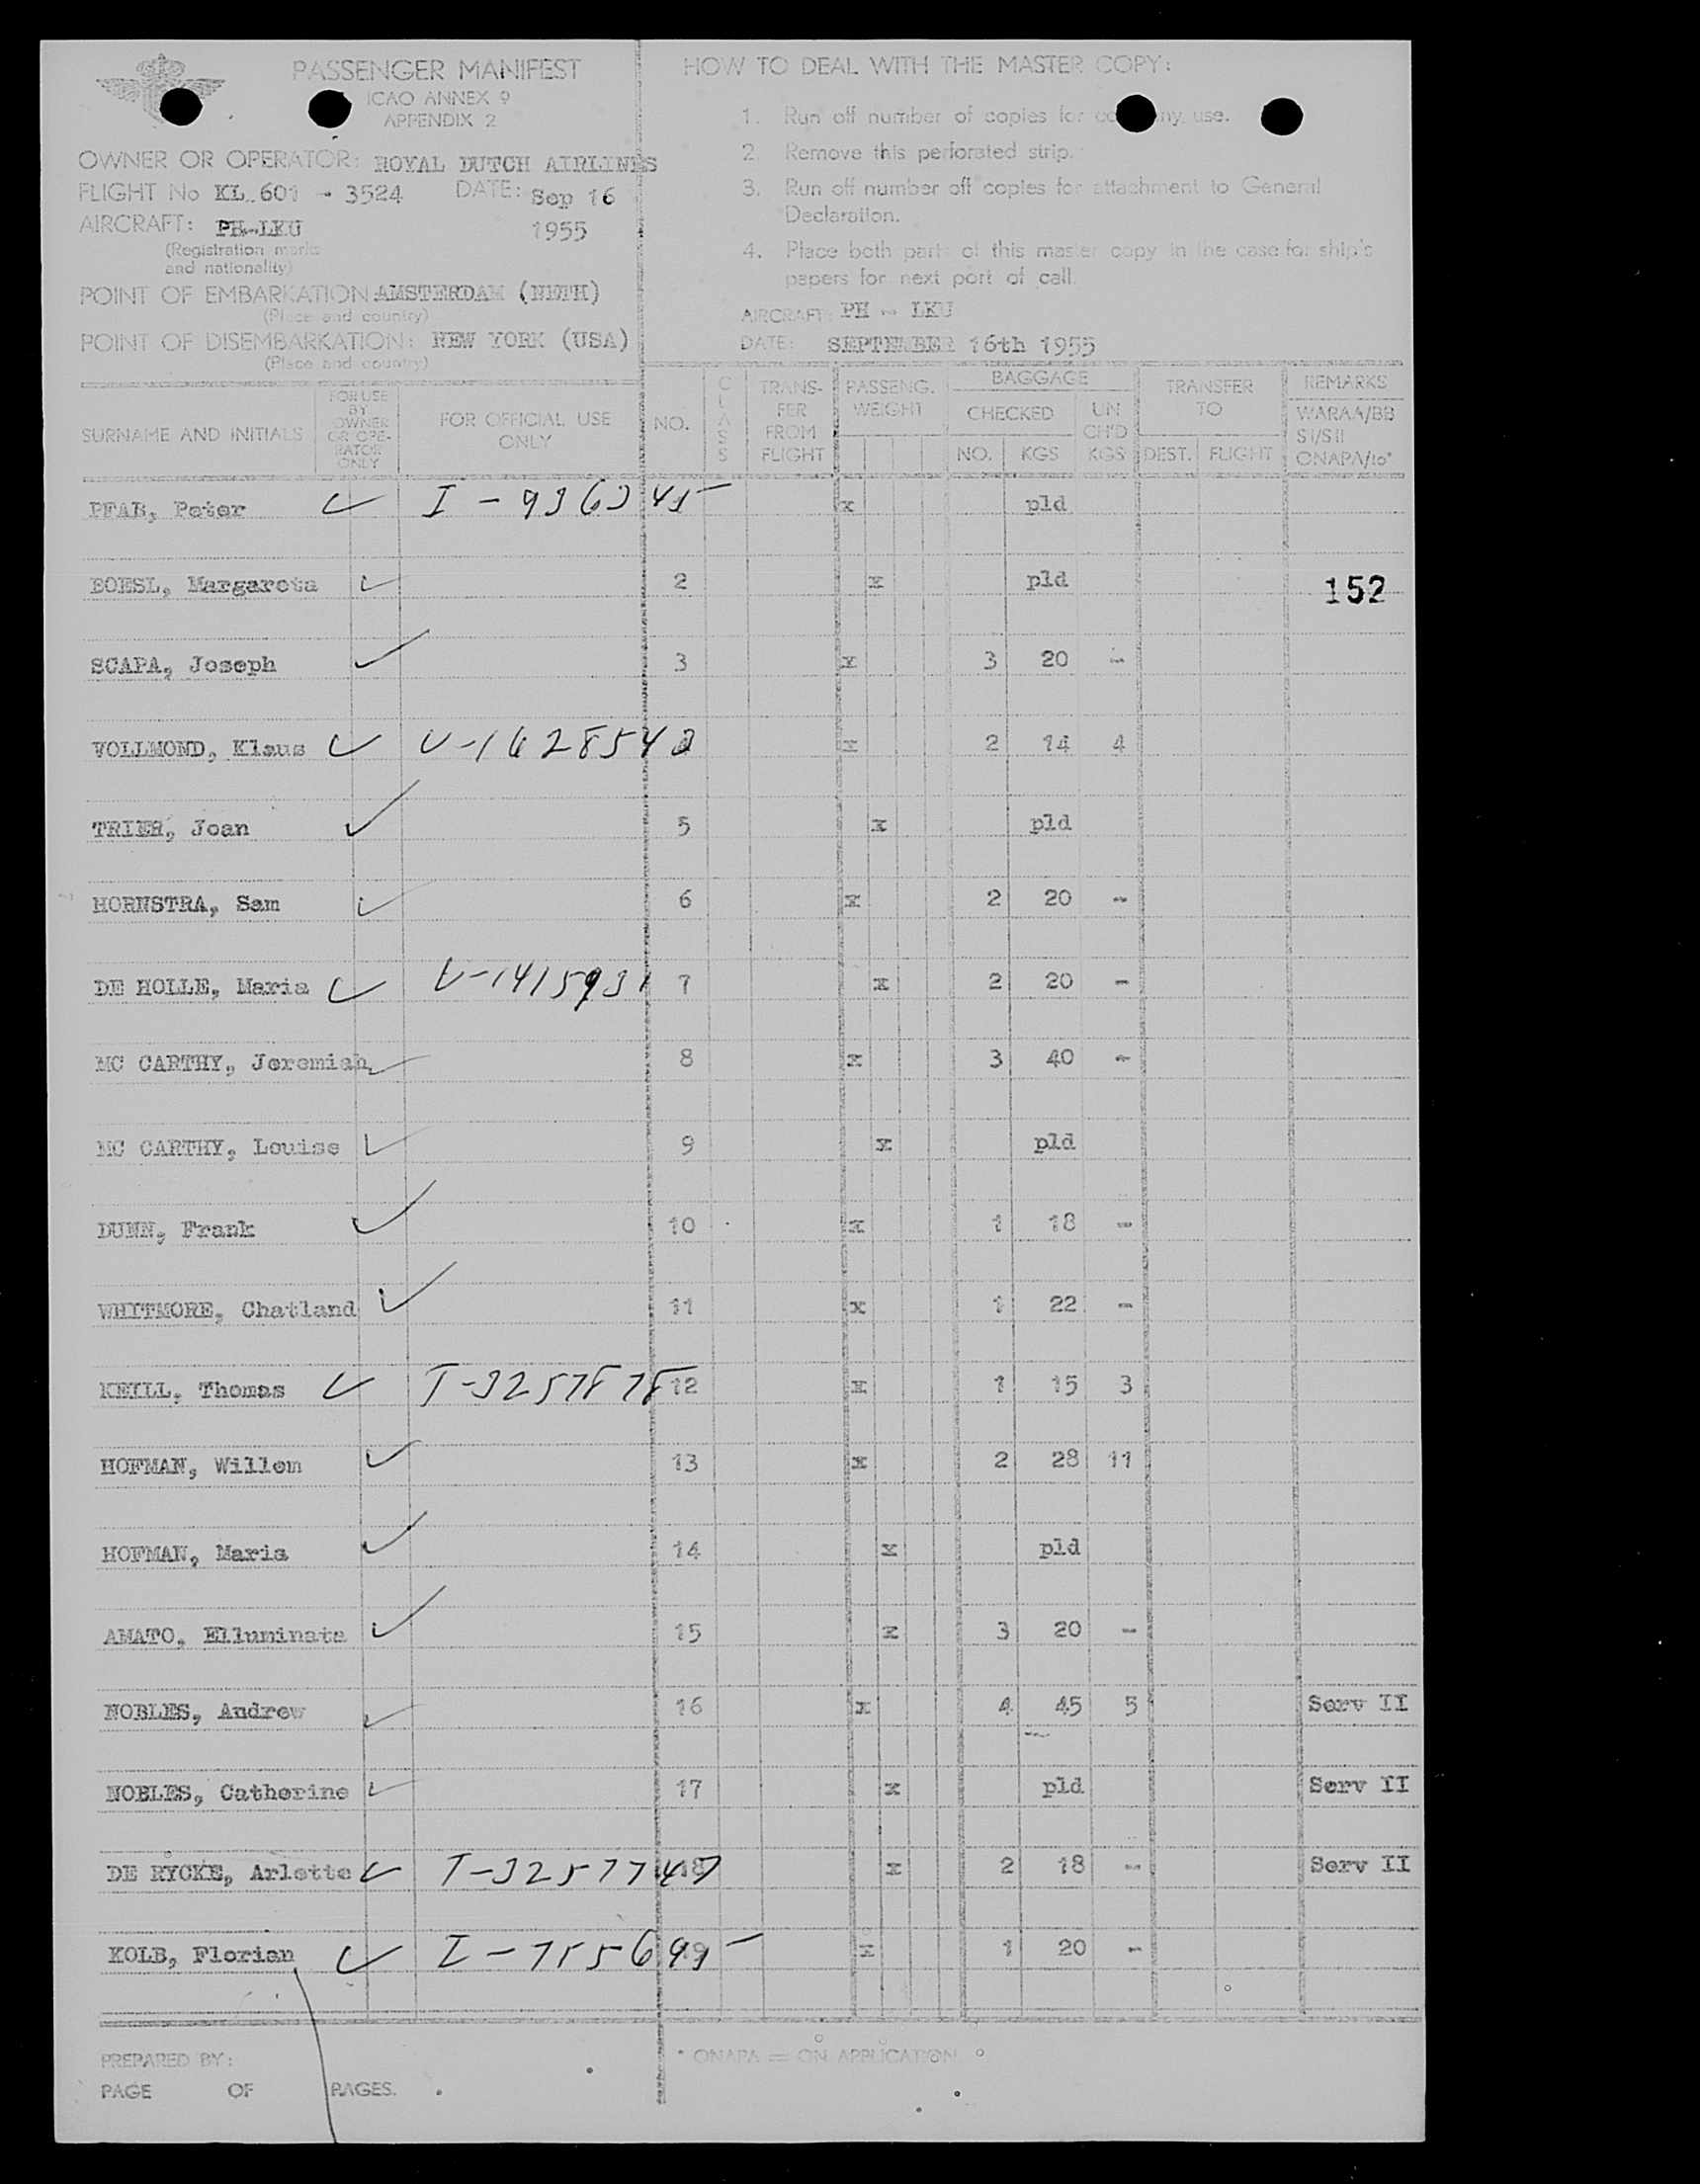 PASSENGER MANIFEST
ICAO ANNEX 9
APPENDIX 2
OWNER OR OPERATOR: ROYAL DUTCH AIRLINES
FLIGHT No KL.601 - 3524 DATE: Sep 16
AIRCRAFT: PH-LKU 1955
(Registration marks
and nationality)
POINT OF EMBARKATION AMSTERDAM (NETH)
(Place and country)
POINT OF DISEMBARKATION: NEW YORK (USA)
(Place and country)
HOW TO DEAL WITH THE MASTER COPY:
1. Run off number of copies for company use.
2. Remove this perforated strip.
3. Run off number off copies for attachment to General
Declaration.
4. Place both parts of this master copy in the case for ship's
papers for next port of call.
AIRCRAFT: PH - LKU
DATE: SEPTEMBER 16th 1955
SURNAME AND INITIALS FOR USE BY OWNER OR OPE-RATOR ONLY FOR OFFICIAL USE ONLY NO. CLASS TRANS-FER FROM FLIGHT PASSENG. WEIGHT BAGGAGE CHECKED NO. KGS UN CH'D KGS TRANSFER TO DEST. FLIGHT REMARKS WARAA/BB SI/SII ONAPA/10*
PFAB, Peter I - 9363 45 x pld
BOESL, Margareta 2 x pld 152
SCAPA, Joseph 3 x 3 20 -
VOLLMOND, Klaus V-1628542 x 2 14 4
TRIER, Joan 5 x pld
HORNSTRA, Sam 6 x 2 20 -
DE HOLLE, Maria V-1415931 7 x 2 20 -
MC CARTHY, Jeremiah 8 x 3 40 -
MC CARTHY, Louise 9 x pld
DUNN, Frank 10 x 1 18 -
WHITMORE, Chatland 11 x 1 22 -
KEILL, Thomas T-3257878 12 x 1 15 3
HOFMAN, Willem 13 x 2 28 11
HOFMAN, Maria 14 x pld
AMATO, Elluminata 15 x 3 20 -
NOBLES, Andrew 16 x 4 45 5 Serv II
NOBLES, Catherine 17 x pld Serv II
DE RYCKE, Arlette T-3257747 18 x 2 18 - Serv II
KOLB, Florian I - 755699 x 1 20 -
PREPARED BY:
PAGE OF PAGES.
* ONAPA = ON APPLICATION